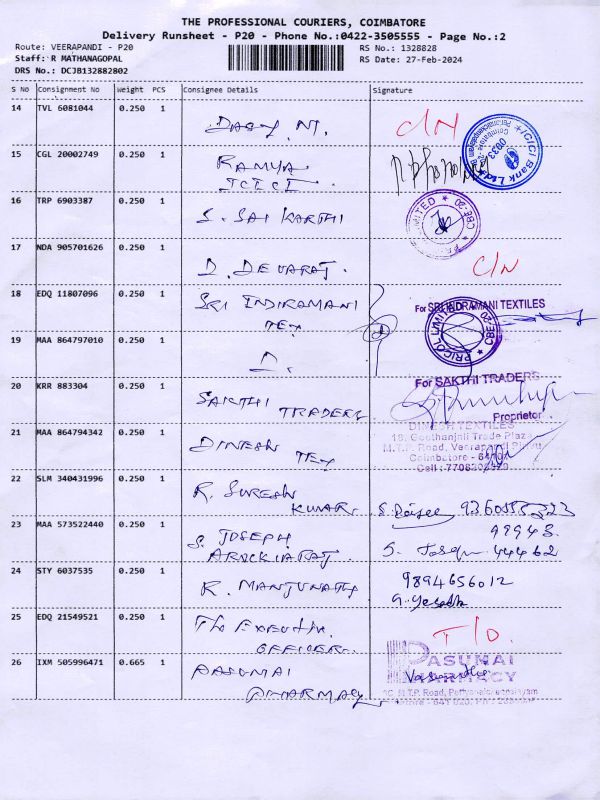 THE PROFESSIONAL COURIERS, COIMBATORE
Delivery Runsheet - P20 - Phone No.:0422-3505555 - Page No.:2
Route: VEERAPANDI - P20
RS No.: 1328828
Staff: R MATHANAGOPAL
RS Date: 27-Feb-2024
DRS No.: DCJB132882802
S No Consignment No Weight PCS Consignee Details Signature
14 TVL 6081044 0.250 1
DAISY. M. C/N
15 CGL 20002749 0.250 1
RAMYA
ICICI
ICICI Bank Ltd
0833
16 TRP 6903387 0.250 1
S. SAI KARTHI
LIMITED CBE-20
17 NDA 905701626 0.250 1
D. DEVARAJ. C/N
18 EDQ 11807096 0.250 1
SRI INDIRAMANI
TEX
For SRI INDRAMANI TEXTILES
19 MAA 864797010 0.250 1
D.
PRICOL LIMITED CBE-20
20 KRR 883304 0.250 1
SAKTHI
TRADERS
For SAKTHI TRADERS
Proprietor
21 MAA 864794342 0.250 1
DINESH TEX
DINESH TEXTILES
18, Geethanjali Trade Plaza
M.T.P. Road, Veerapandi
Coimbatore
Cell :
22 SLM 340431996 0.250 1
R. SURESH
KUMAR.
23 MAA 573522440 0.250 1
S. JOSEPH
AROCKIARAJ.
99943
44462
24 STY 6037535 0.250 1
R. MANJUNATH
9894656012
25 EDQ 21549521 0.250 1
The EXECUTIVE
OFFICER
T/D.
26 IXM 505996471 0.665 1
PASUMAI
PHARMACY
PASUMAI
PHARMACY
M.T.P. Road,